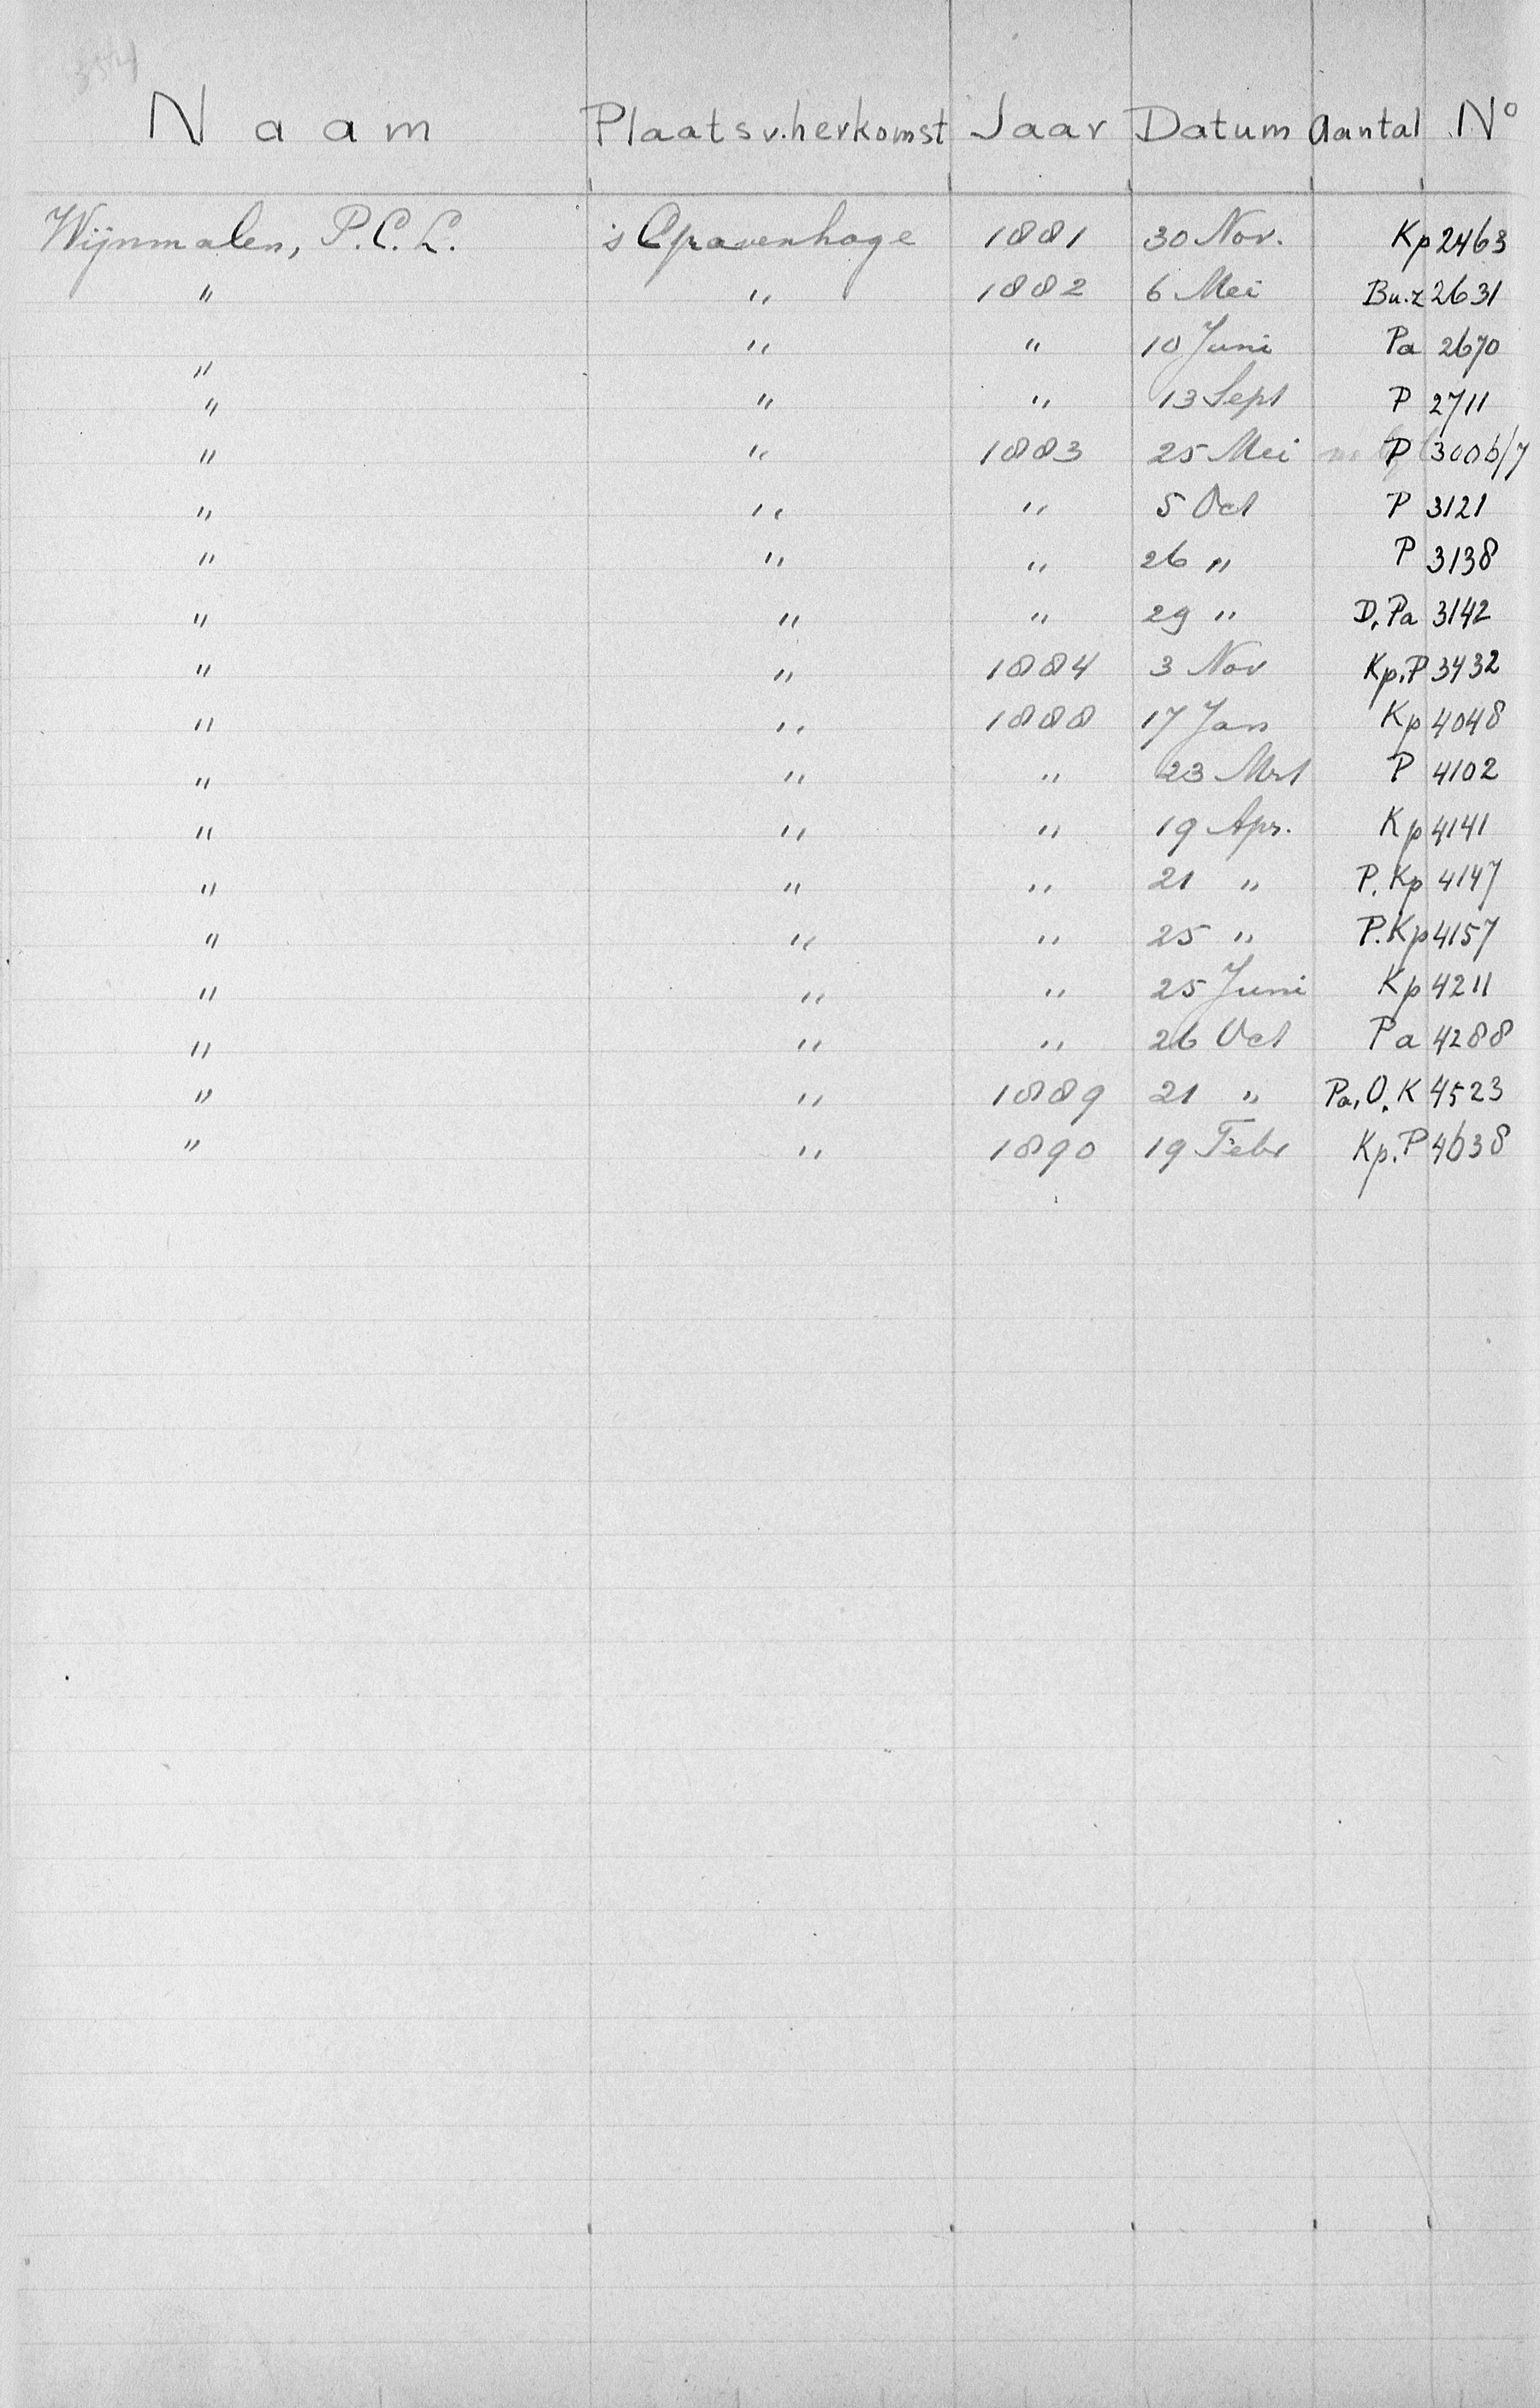 Naam Plaats v. herkomst Jaar Datum Aantal No
Wijnmalen, P.C.L. 's Gravenhage 1881 30 Nov. Kp 2463
" " 1882 6 Mei Bu.z 2631
" " " 10 Juni Pa 2670
" " " 13 Sept P 2711
" " 1883 25 Mei P 3006/7
" " " 5 Oct P 3121
" " " 26 " P 3138
" " " 29 " D. Pa 3142
" " 1884 3 Nov Kp. P 3432
" " 1888 17 Jan Kp 4048
" " " 23 Mrt P 4102
" " " 19 Apr. Kp 4141
" " " 21 " P. Kp 4147
" " " 25 " P. Kp 4157
" " " 25 Juni Kp 4211
" " " 26 Oct Pa 4288
" " 1889 21 " Pa, O. K 4523
" " 1890 19 Febr Kp. P 4638